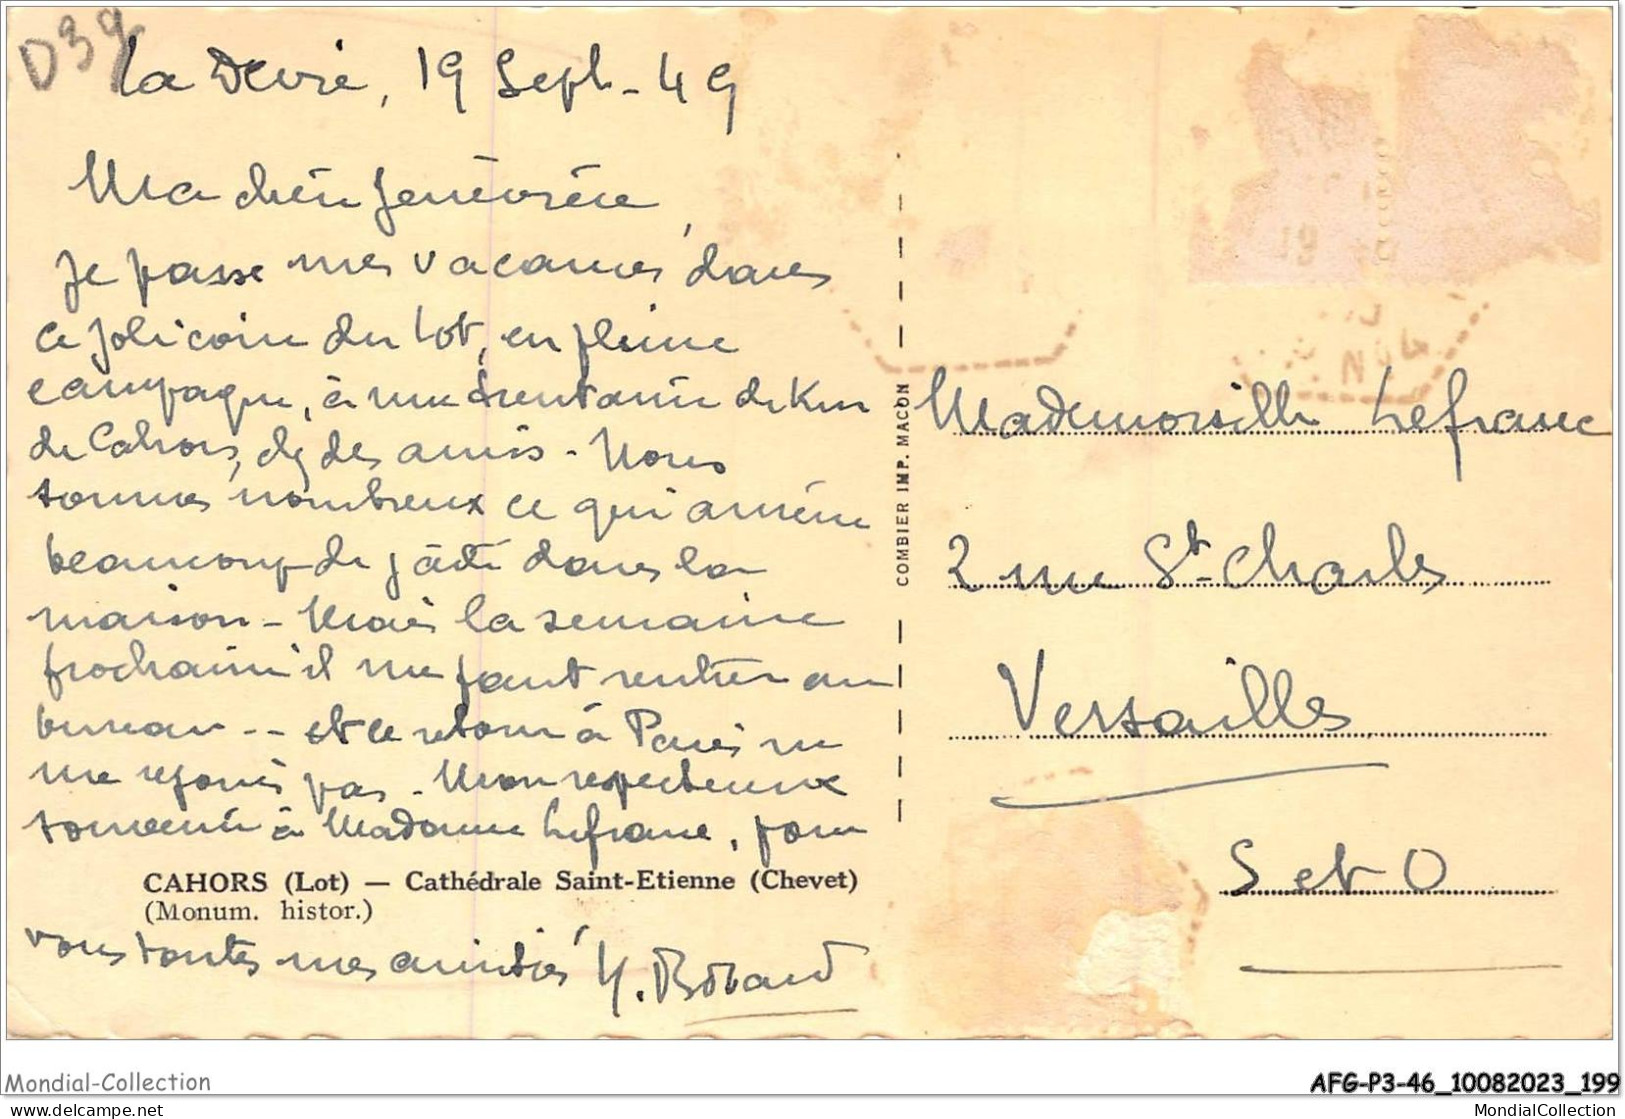 D39
La Devie, 19 Sept - 49
Ma chère Geneviève,
je passe mes vacances dans
ce joli coin du Lot, en pleine
campagne, à une trentaine de Km
de Cahors, chez des amis - Nous
sommes nombreux ce qui amène
beaucoup de gaîté dans la
maison - Mais la semaine
prochaine il me faut rentrer au
bureau -- et ce retour à Paris ne
me réjouis pas - Mon respectueux
souvenir à Madame Lefranc, pour
CAHORS (Lot) — Cathédrale Saint-Etienne (Chevet)
(Monum. histor.)
vous toutes mes amitiés
COMBIER IMP. MACON
Mademoiselle Lefranc
2 rue St-Charles
Versailles
S et O
Mondial-Collection
AFG-P3-46_10082023_199
www.delcampe.net
MondialCollection